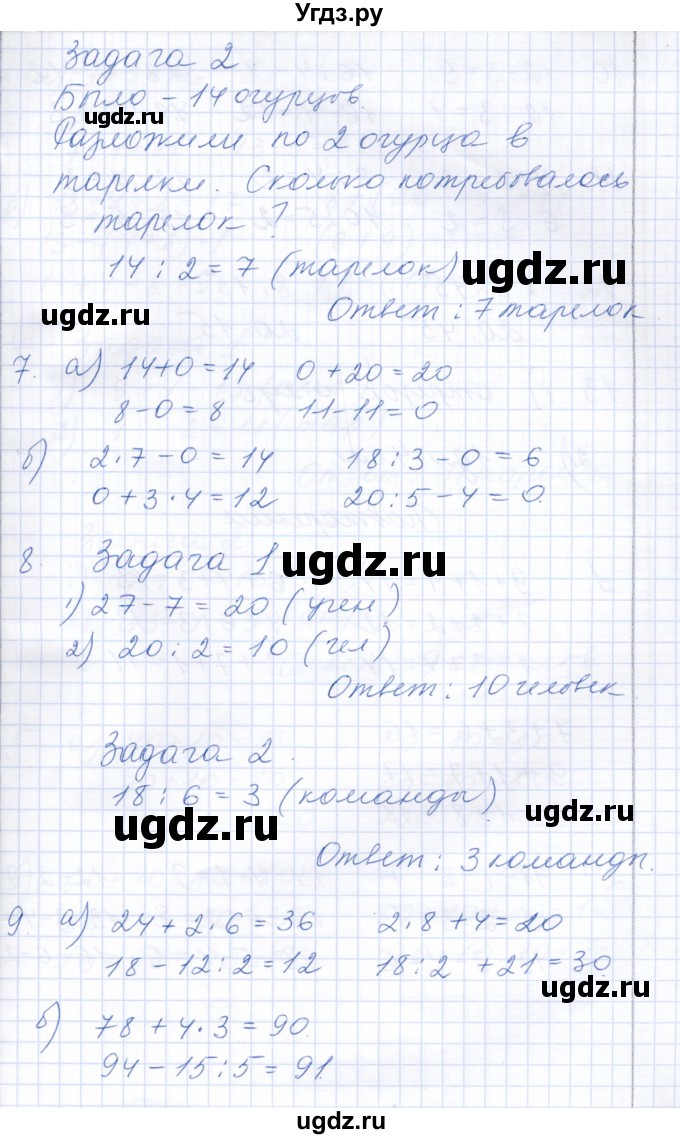 Угдз.ру
Задача 2.
Было - 14 огурцов.
ugdz.ru
Разложили по 2 огурца в
тарелки. Сколько потребовалось
тарелок?
14 : 2 = 7 (тарелок)
ugdz.ru
Ответ: 7 тарелок.
ugdz.ru
7. а) 14+0=14 0+20=20
8-0=8 11-11=0
б) 2·7-0=14 18:3-0=6
0+3·4=12 20:5-4=0.
8. Задача 1
ugdz.ru
1) 27-7=20 (учен)
2) 20:2=10 (чел)
Ответ: 10 человек
Задача 2.
18:6=3 (команды)
ugdz.ru
ugdz.ru
Ответ: 3 команды.
9. а) 24+2·6=36 2·8+4=20
18-12:2=12 18:2 +21=30.
ugdz.ru
б) 78+4·3=90.
94-15:5=91.
ugdz.ru